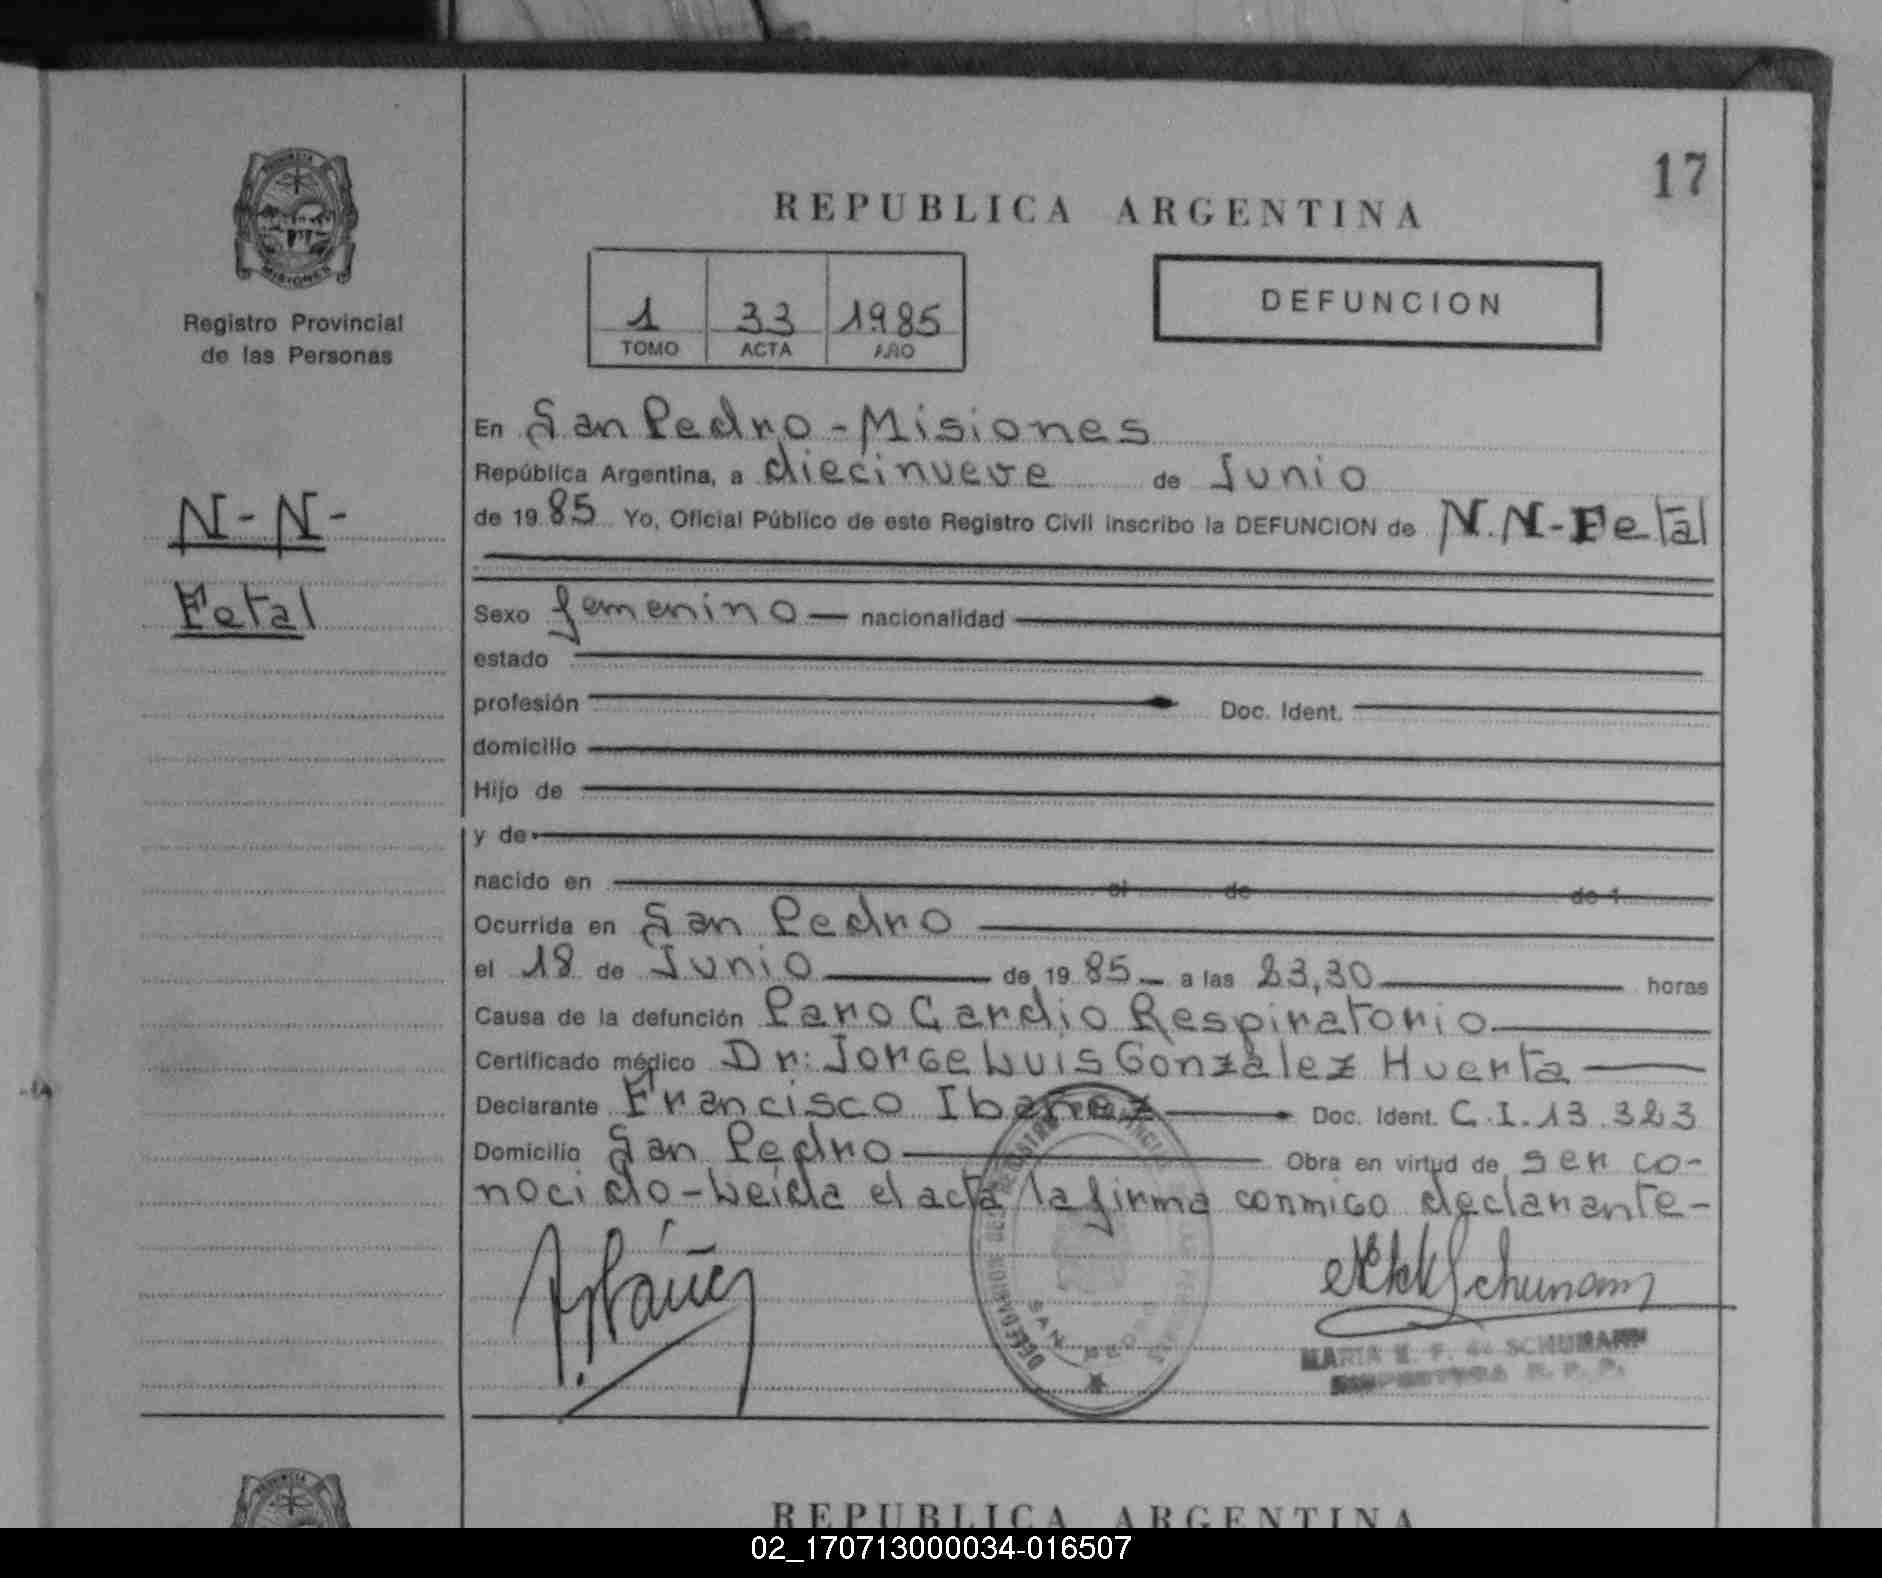 17
PROVINCIA
MISIONES
Registro Provincial
de las Personas
REPUBLICA ARGENTINA
1 33 1985
TOMO ACTA AÑO
DEFUNCION
N-N-
Fetal
En San Pedro - Misiones
República Argentina, a diecinueve de Junio
de 1985 Yo, Oficial Público de este Registro Civil inscribo la DEFUNCION de N.N-Fetal
Sexo femenino — nacionalidad
estado
profesión Doc. Ident.
domicilio
Hijo de
y de
nacido en el de de 1
Ocurrida en San Pedro
el 18 de Junio de 1985 — a las 23,30 horas
Causa de la defunción Paro Cardio Respiratorio
Certificado médico Dr: Jorge Luis González Huerta
Declarante Francisco Ibañez Doc. Ident. C.I. 13.323
Domicilio San Pedro Obra en virtud de ser co-
nocido - Leída el acta la firma conmigo declarante-
SAN PEDRO
MARIA E. F. de SCHUMANN
R. P. P.
PROVINCIA
REPUBLICA ARGENTINA
02_170713000034-016507